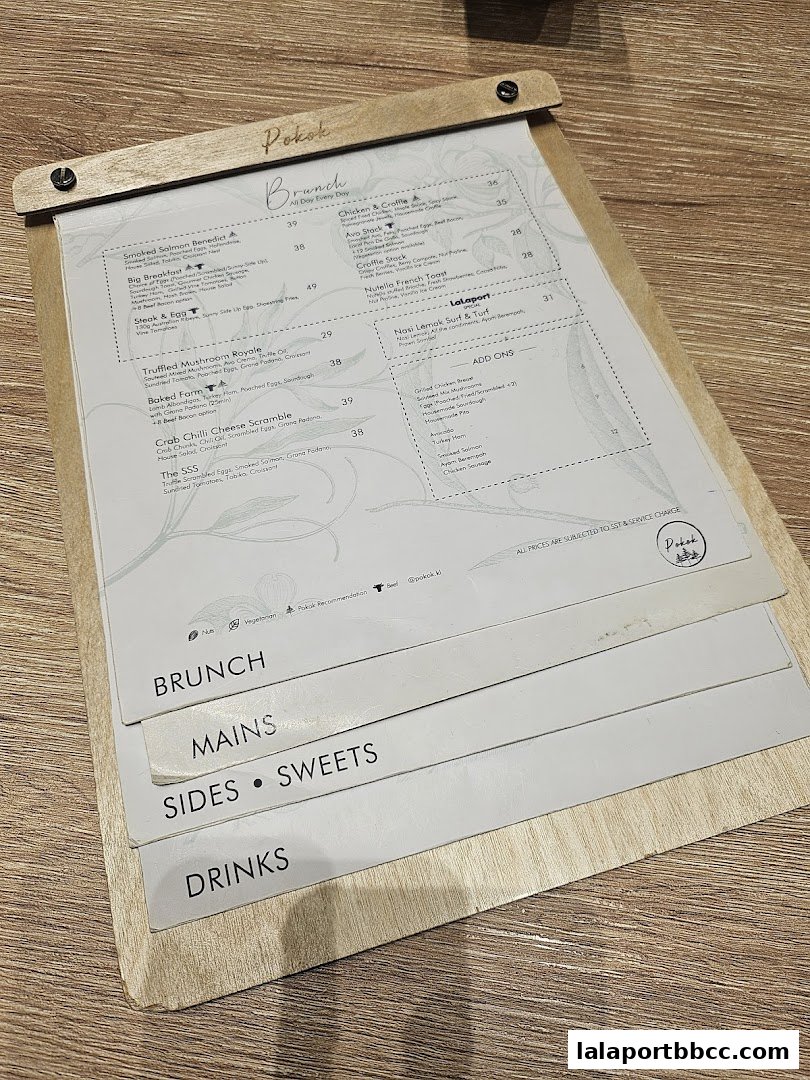 Pokok
Brunch
All Day Every Day
Smoked Salmon Benedict 39
Smoked Salmon, Poached Eggs, Hollandaise,
House Salad, Tobiko, Croissant Nest
Big Breakfast 38
Choice of Eggs (Poached/Scrambled/Sunny Side Up),
Sourdough Toast, Gourmet Chicken Sausage,
Turkey Ham, Grilled Vine Tomatoes, Button
Mushroom, Hash Brown, House Salad
+8 Beef Bacon option
Steak & Egg 49
150g Australian Ribeye, Sunny Side Up Egg, Shoestring Fries,
Vine Tomatoes
Chicken & Croffle 36
Spiced Fried Chicken, House Sauce, Spicy Sauce,
Pomegranate Jewels, Housemade Croffle
Ava Stack 35
Smashed Avo, Feta, Poached Eggs, Beef Bacon,
Corn Pico De Gallo, Sourdough
+12 Smoked Salmon
(Vegetarian option available)
Croffle Stack 28
Crispy Croffles, Berry Compote, Nut Praline,
Fresh Berries, Vanilla Ice Cream
Nutella French Toast 28
Nutella stuffed Brioche, Fresh Strawberries, Cocoa Nibs,
Nut Praline, Vanilla Ice Cream
LaLaport
SPECIAL
Nasi Lemak Surf & Turf 31
Nasi Lemak, All the condiments, Ayam Berempah,
Prawn Sambal
Truffled Mushroom Royale 29
Sauteed Mixed Mushrooms, Avo Crema, Truffle Oil,
Sundried Tomato, Poached Eggs, Grana Padano, Croissant
Baked Farm 38
Lamb Albondigas, Turkey Ham, Poached Eggs, Sourdough
with Grana Padano (25min)
+8 Beef Bacon option
Crab Chilli Cheese Scramble 39
Crab Chunks, Chili Oil, Scrambled Eggs, Grana Padano,
House Salad, Croissant
The SSS 38
Truffle Scrambled Eggs, Smoked Salmon, Grana Padano,
Sundried Tomatoes, Tobiko, Croissant
ADD ONS
Grilled Chicken Breast
Sauteed Mix Mushrooms
Eggs (Poached/Fried/Scrambled +2)
Housemade Sourdough
Housemade Pita
Avocado
Turkey Ham
Smoked Salmon 12
Ayam Berempah
Chicken Sausage
ALL PRICES ARE SUBJECTED TO SST & SERVICE CHARGE
Pokok
Nuts Vegetarian Pokok Recommendation Beef @pokok.kl
BRUNCH
MAINS
SIDES • SWEETS
DRINKS
lalaportbbcc.com